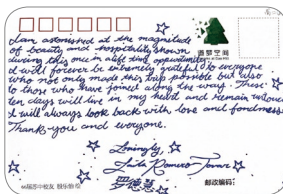 I am astonished at the magnitude
of beauty and hospitality shown
during this once in a life time opportunity.
I will forever be extremely grateful to everyone
who not only made this trip possible but also
to those who have joined along the way. These
ten days will live in my heart and remain
I will always look back with love and fondness.
Thank you and everyone.
Lovingly,
罗德慧
邮政编码: